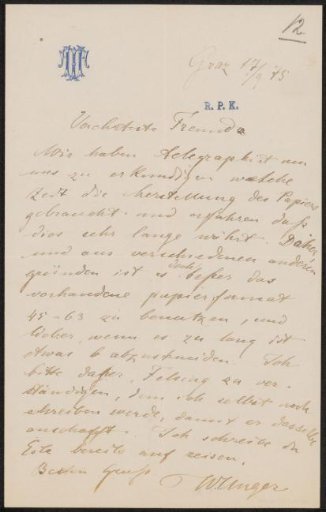 12
Graz 17/9 75
R. P. K.
Verehrte Freunde
Wir haben telegraphirt um
uns zu erkundigen welche
Zeit die Herstellung des Papiers
gebraucht und erfahren daß
dies sehr lange währt. Daher
und aus verschiedenen anderen
gründen ist es doch besser das
vorhandene papierformat
45-63 zu benutzen, und
lieber, wenn es zu lang ist
etwas abzuschneiden. Ich
bitte daher, Felsing zu ver-
ständigen, dem ich selbst noch
schreiben werde, damit er dasselbe
anschafft. Ich schreibe in
Eile bereits auf reisen.
Besten Gruß
WUnger